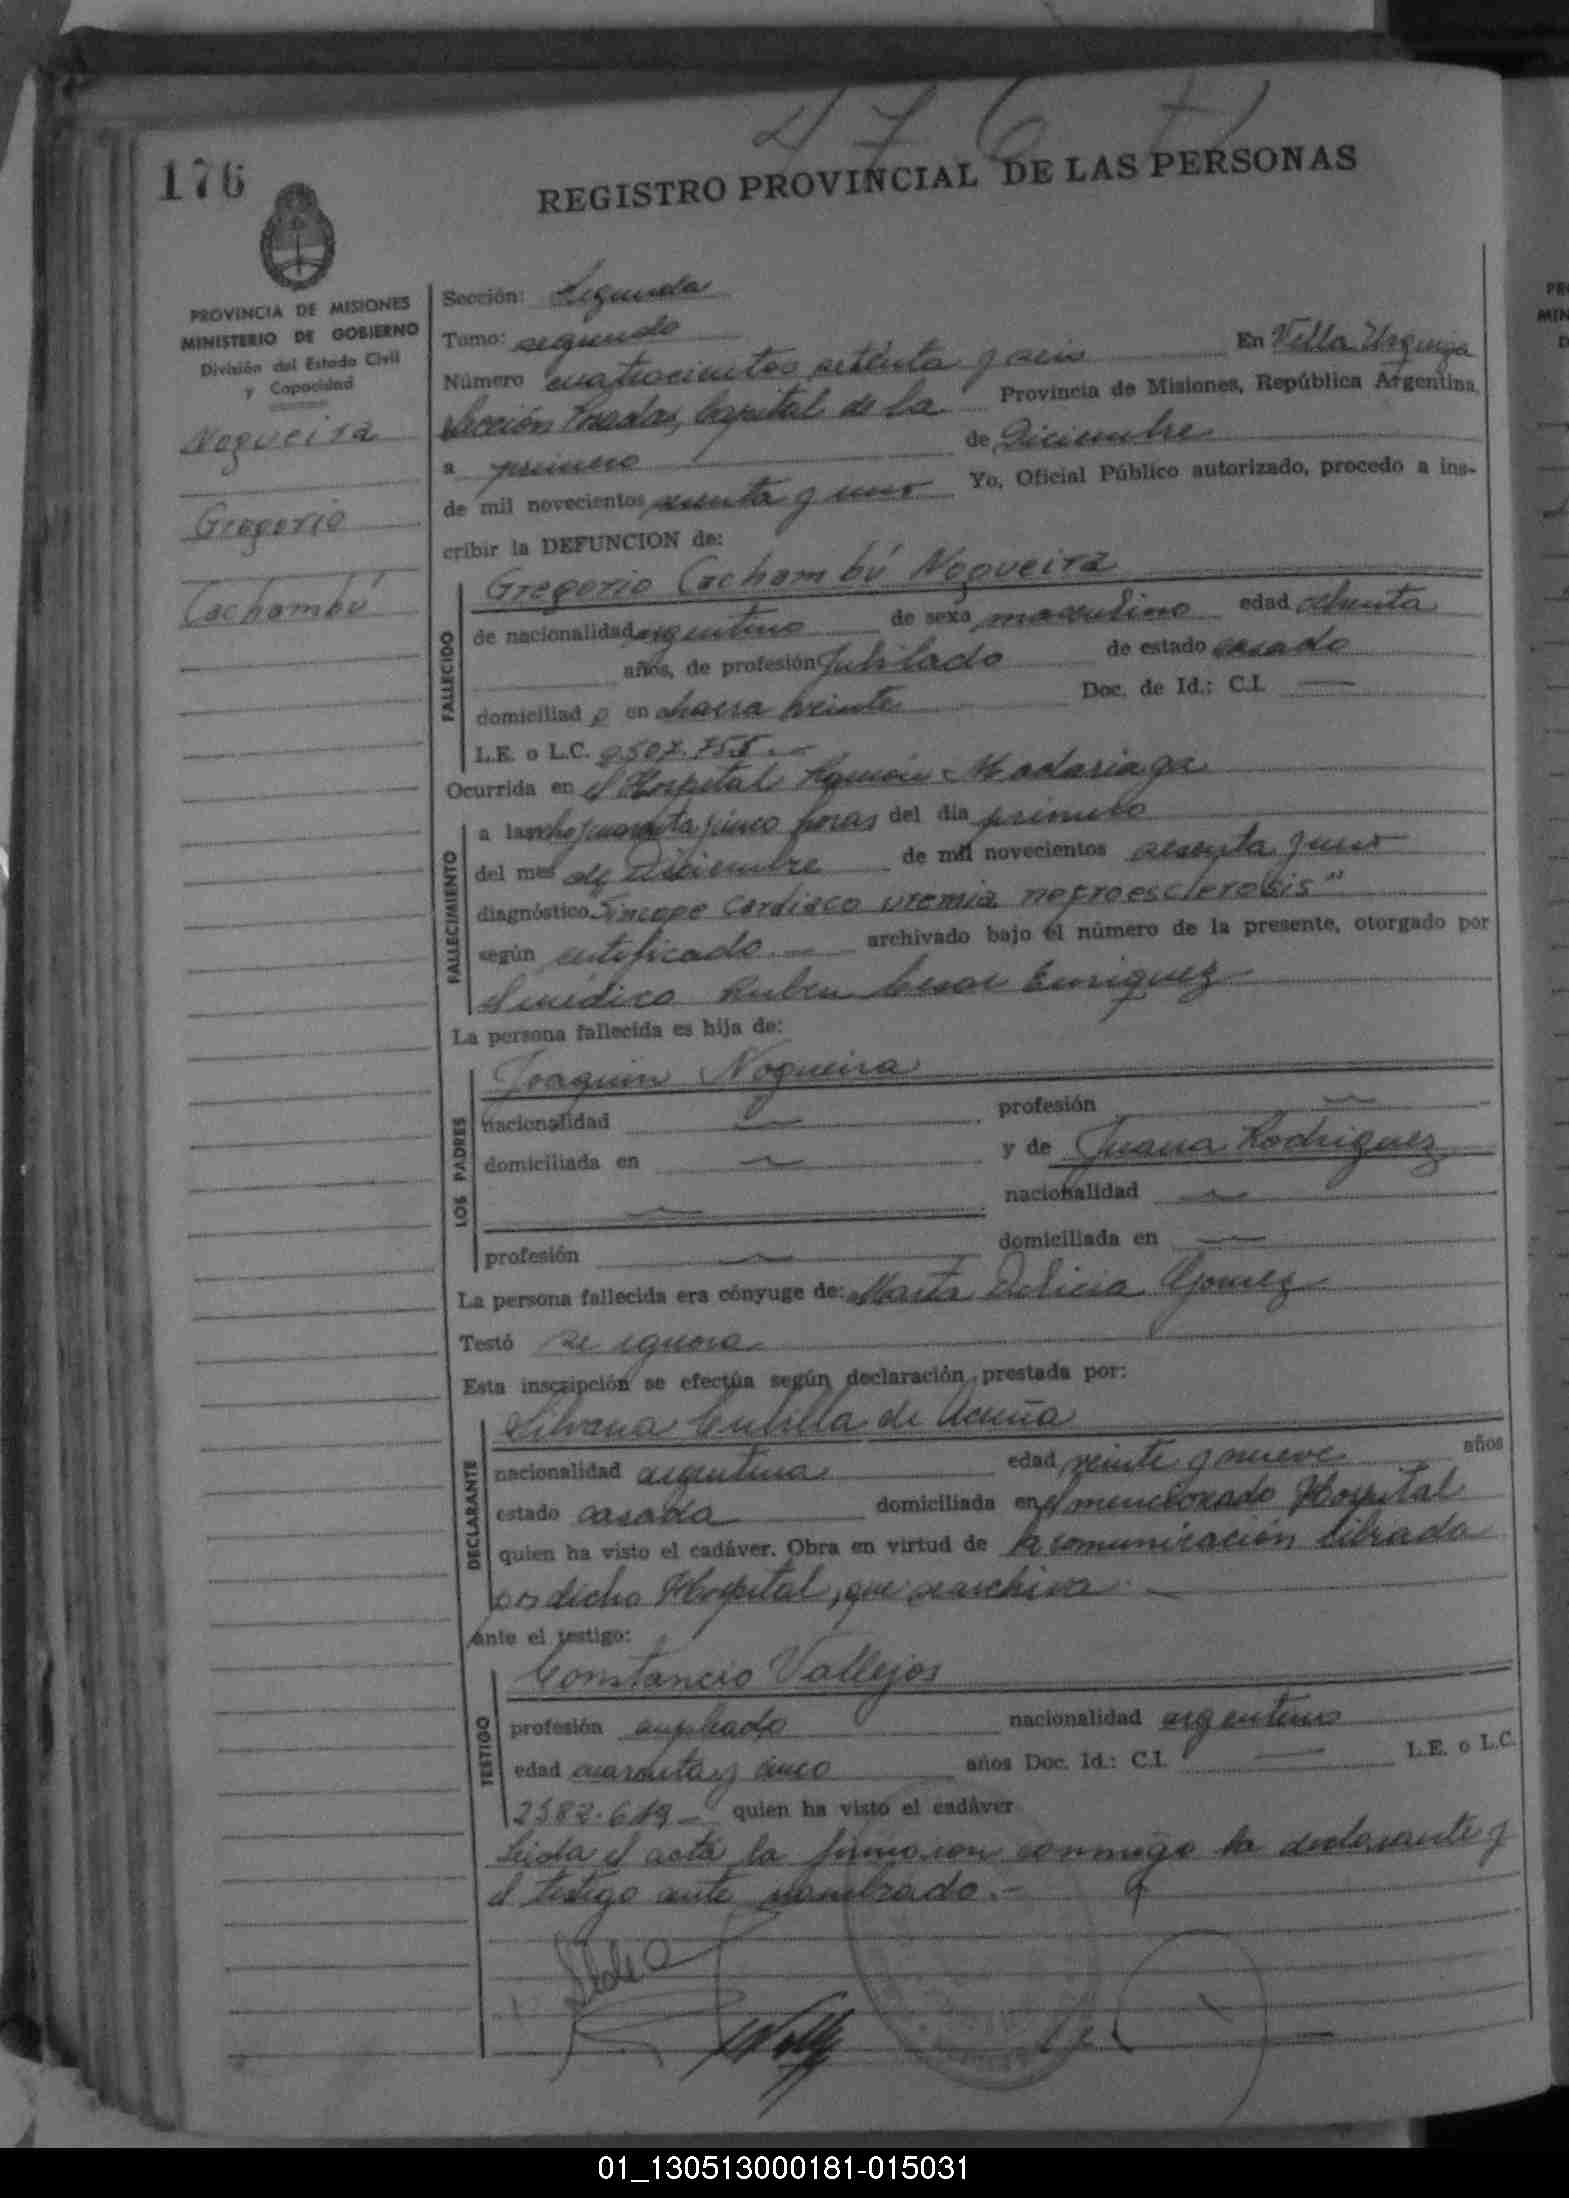 476
176
REGISTRO PROVINCIAL DE LAS PERSONAS
PROVINCIA DE MISIONES
MINISTERIO DE GOBIERNO
División del Estado Civil
y Capacidad
Nogueira
Gregorio
Cachambú
Sección: Segunda
Tomo: segundo
Número cuatrocientos setenta y seis En Villa Urquiza
Sección Posadas, Capital de la Provincia de Misiones, República Argentina,
a primero de Diciembre
de mil novecientos sesenta y uno Yo, Oficial Público autorizado, procedo a ins-
cribir la DEFUNCION de:
FALLECIDO
Gregorio Cachambú Nogueira
de nacionalidad argentino de sexo masculino edad ochenta
años, de profesión Jubilado de estado casado
domiciliad o en chacra veinte Doc. de Id.: C.I. —
L.E. o L.C.
Ocurrida en el Hospital Ramón Madariaga
FALLECIMIENTO
a las ocho cuarenta cinco horas del día primero
del mes de Diciembre de mil novecientos sesenta y uno
diagnóstico Sincope cardiaco uremia nefroesclerosis"
según certificado — archivado bajo el número de la presente, otorgado por
el médico Ruben Cesar Enriquez
La persona fallecida es hija de:
LOS PADRES
Joaquin Nogueira
nacionalidad — profesión —
domiciliada en — y de Juana Rodriguez
— nacionalidad —
profesión — domiciliada en —
La persona fallecida era cónyuge de: Maria Delicia Gomez
Testó se ignora
Esta inscripción se efectúa según declaración prestada por:
DECLARANTE
Silvana Cubilla de Acuña
nacionalidad argentina edad veinte y nueve años
estado casada domiciliada en el mencionado Hospital
quien ha visto el cadáver. Obra en virtud de la comunicación librada
por dicho Hospital, que se archiva. —
ante el testigo:
TESTIGO
Constancio Vallejos
profesión empleado nacionalidad argentino
edad cuarenta y cinco años Doc. Id.: C.I. — L.E. o L.C.
2582.619 — quien ha visto el cadáver
Leida el acta la firmaron conmigo la declarante y
el testigo ante nombrado.-
01_130513000181-015031